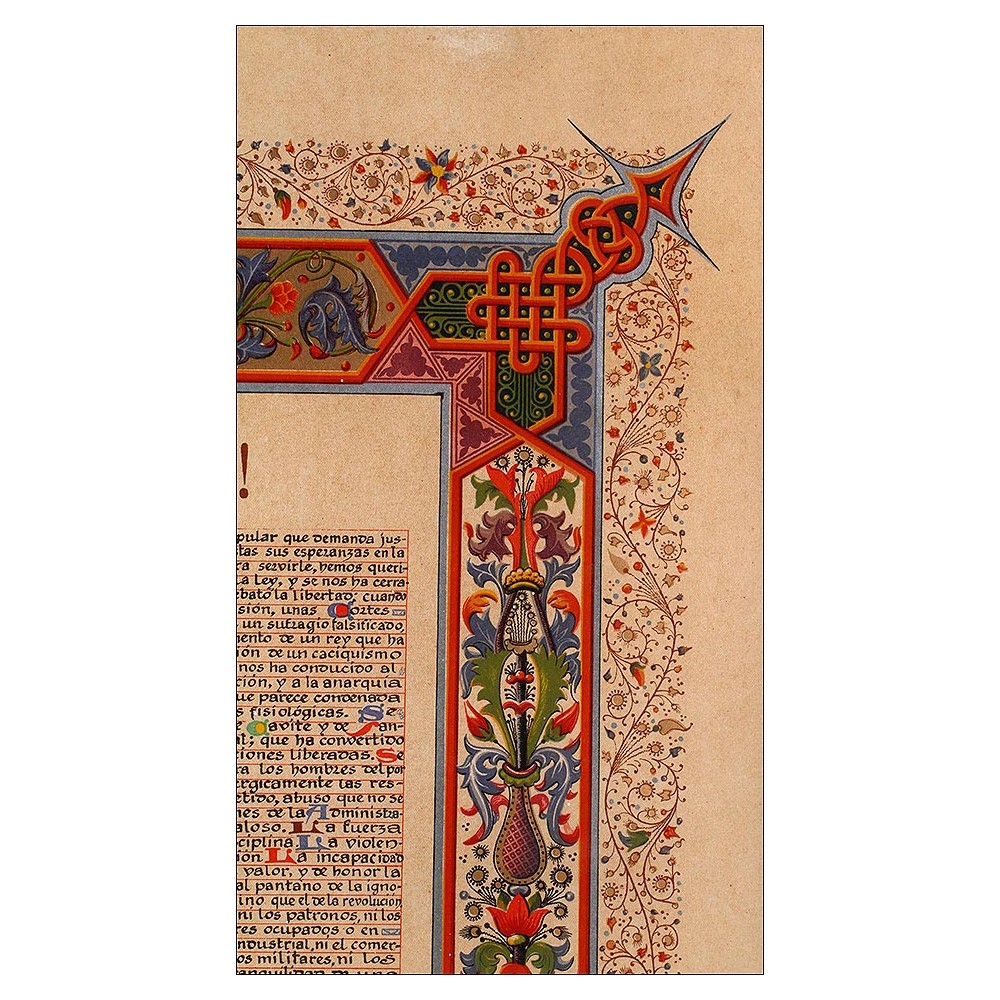 !
pular que demanda jus-
tas sus esperanzas en la
ra servirle, hemos queri-
la ley, y se nos ha cerra-
ebató la libertad; cuando
sión, unas Cortes
un sufragio falsificado,
ento de un rey que ha
ión de un caciquismo
nos ha conducido al
ción, y a la anarquia
ue parece condenada
s fisiológicas. Se
e Cavite y de San-
al; que ha convertido
ciones liberadas. Se
ra los hombres del por
érgicamente las res-
etido, abuso que no se
nes de la Administra-
aloso. La fuerza
ciplina La violen
ión. La incapacidad
valor, y de honor la
al pantano de la igno-
ino que el de la revolucion
ni los patronos, ni los
res ocupados o en
ndustrial, ni el comer-
os militares, ni los
anquilidad de una